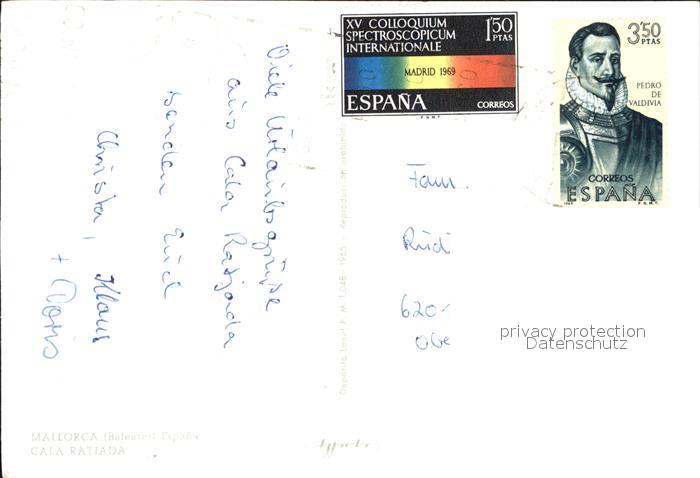 XV COLLOQUIUM
SPECTROSCOPICUM
INTERNATIONALE
1'50
PTAS
MADRID 1969
ESPAÑA
CORREOS
F.N.M.T.
3'50
PTAS
PEDRO
DE
VALDIVIA
CORREOS
ESPAÑA
F.N.M.T.
Viele Urlaubsgrüße
aus Cala Ratjada
senden Euch
Christa, Klaus
+ Doris
Fam.
Rüdi
620
Obe
privacy protection
Datenschutz
Depósito Legal B. M. 1.048 - 1965 - Reproducción prohibida
MALLORCA (Baleares) España
CALA RATJADA